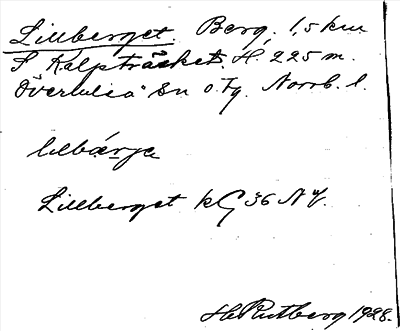 Lillberget. Berg. 1,5 km
S Kalpträsket. H. 225 m.
Överluleå Sn o. Tg. Norrb. l.
lılbærje
Lillberget kG 36 NV.
H. Rutberg 1928.